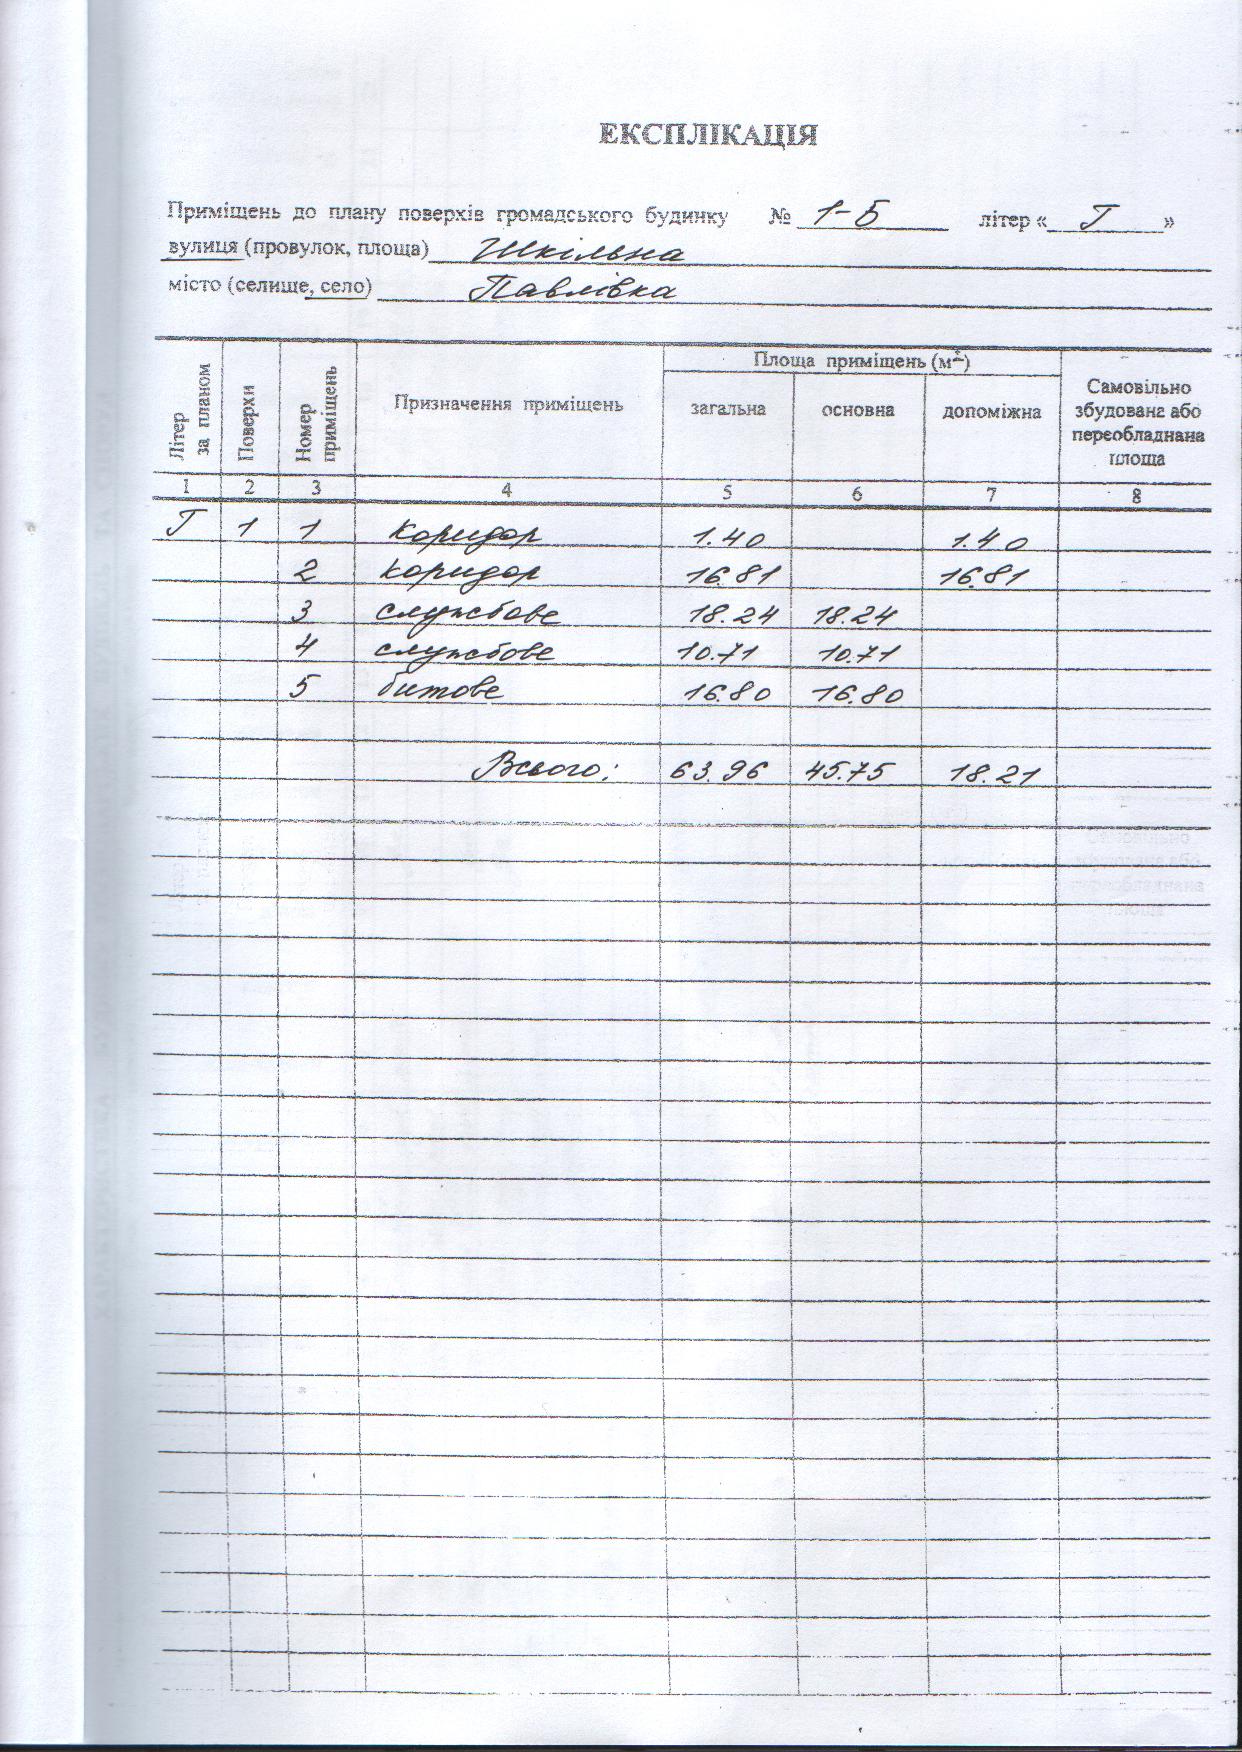 ЕКСПЛІКАЦІЯ
Приміщень до плану поверхів громадського будинку № 1-Б літер « Г »
вулиця (провулок, площа) Шкільна
місто (селище, село) Павлівка
Літер за планом Поверхи Номер приміщень Призначення приміщень Площа приміщень (м²) загальна основна допоміжна Самовільно збудована або переобладнана площа
1 2 3 4 5 6 7 8
Г 1 1 коридор 1.40 1.40
2 коридор 16.81 16.81
3 службове 18.24 18.24
4 службове 10.71 10.71
5 битове 16.80 16.80
Всього: 63.96 45.75 18.21